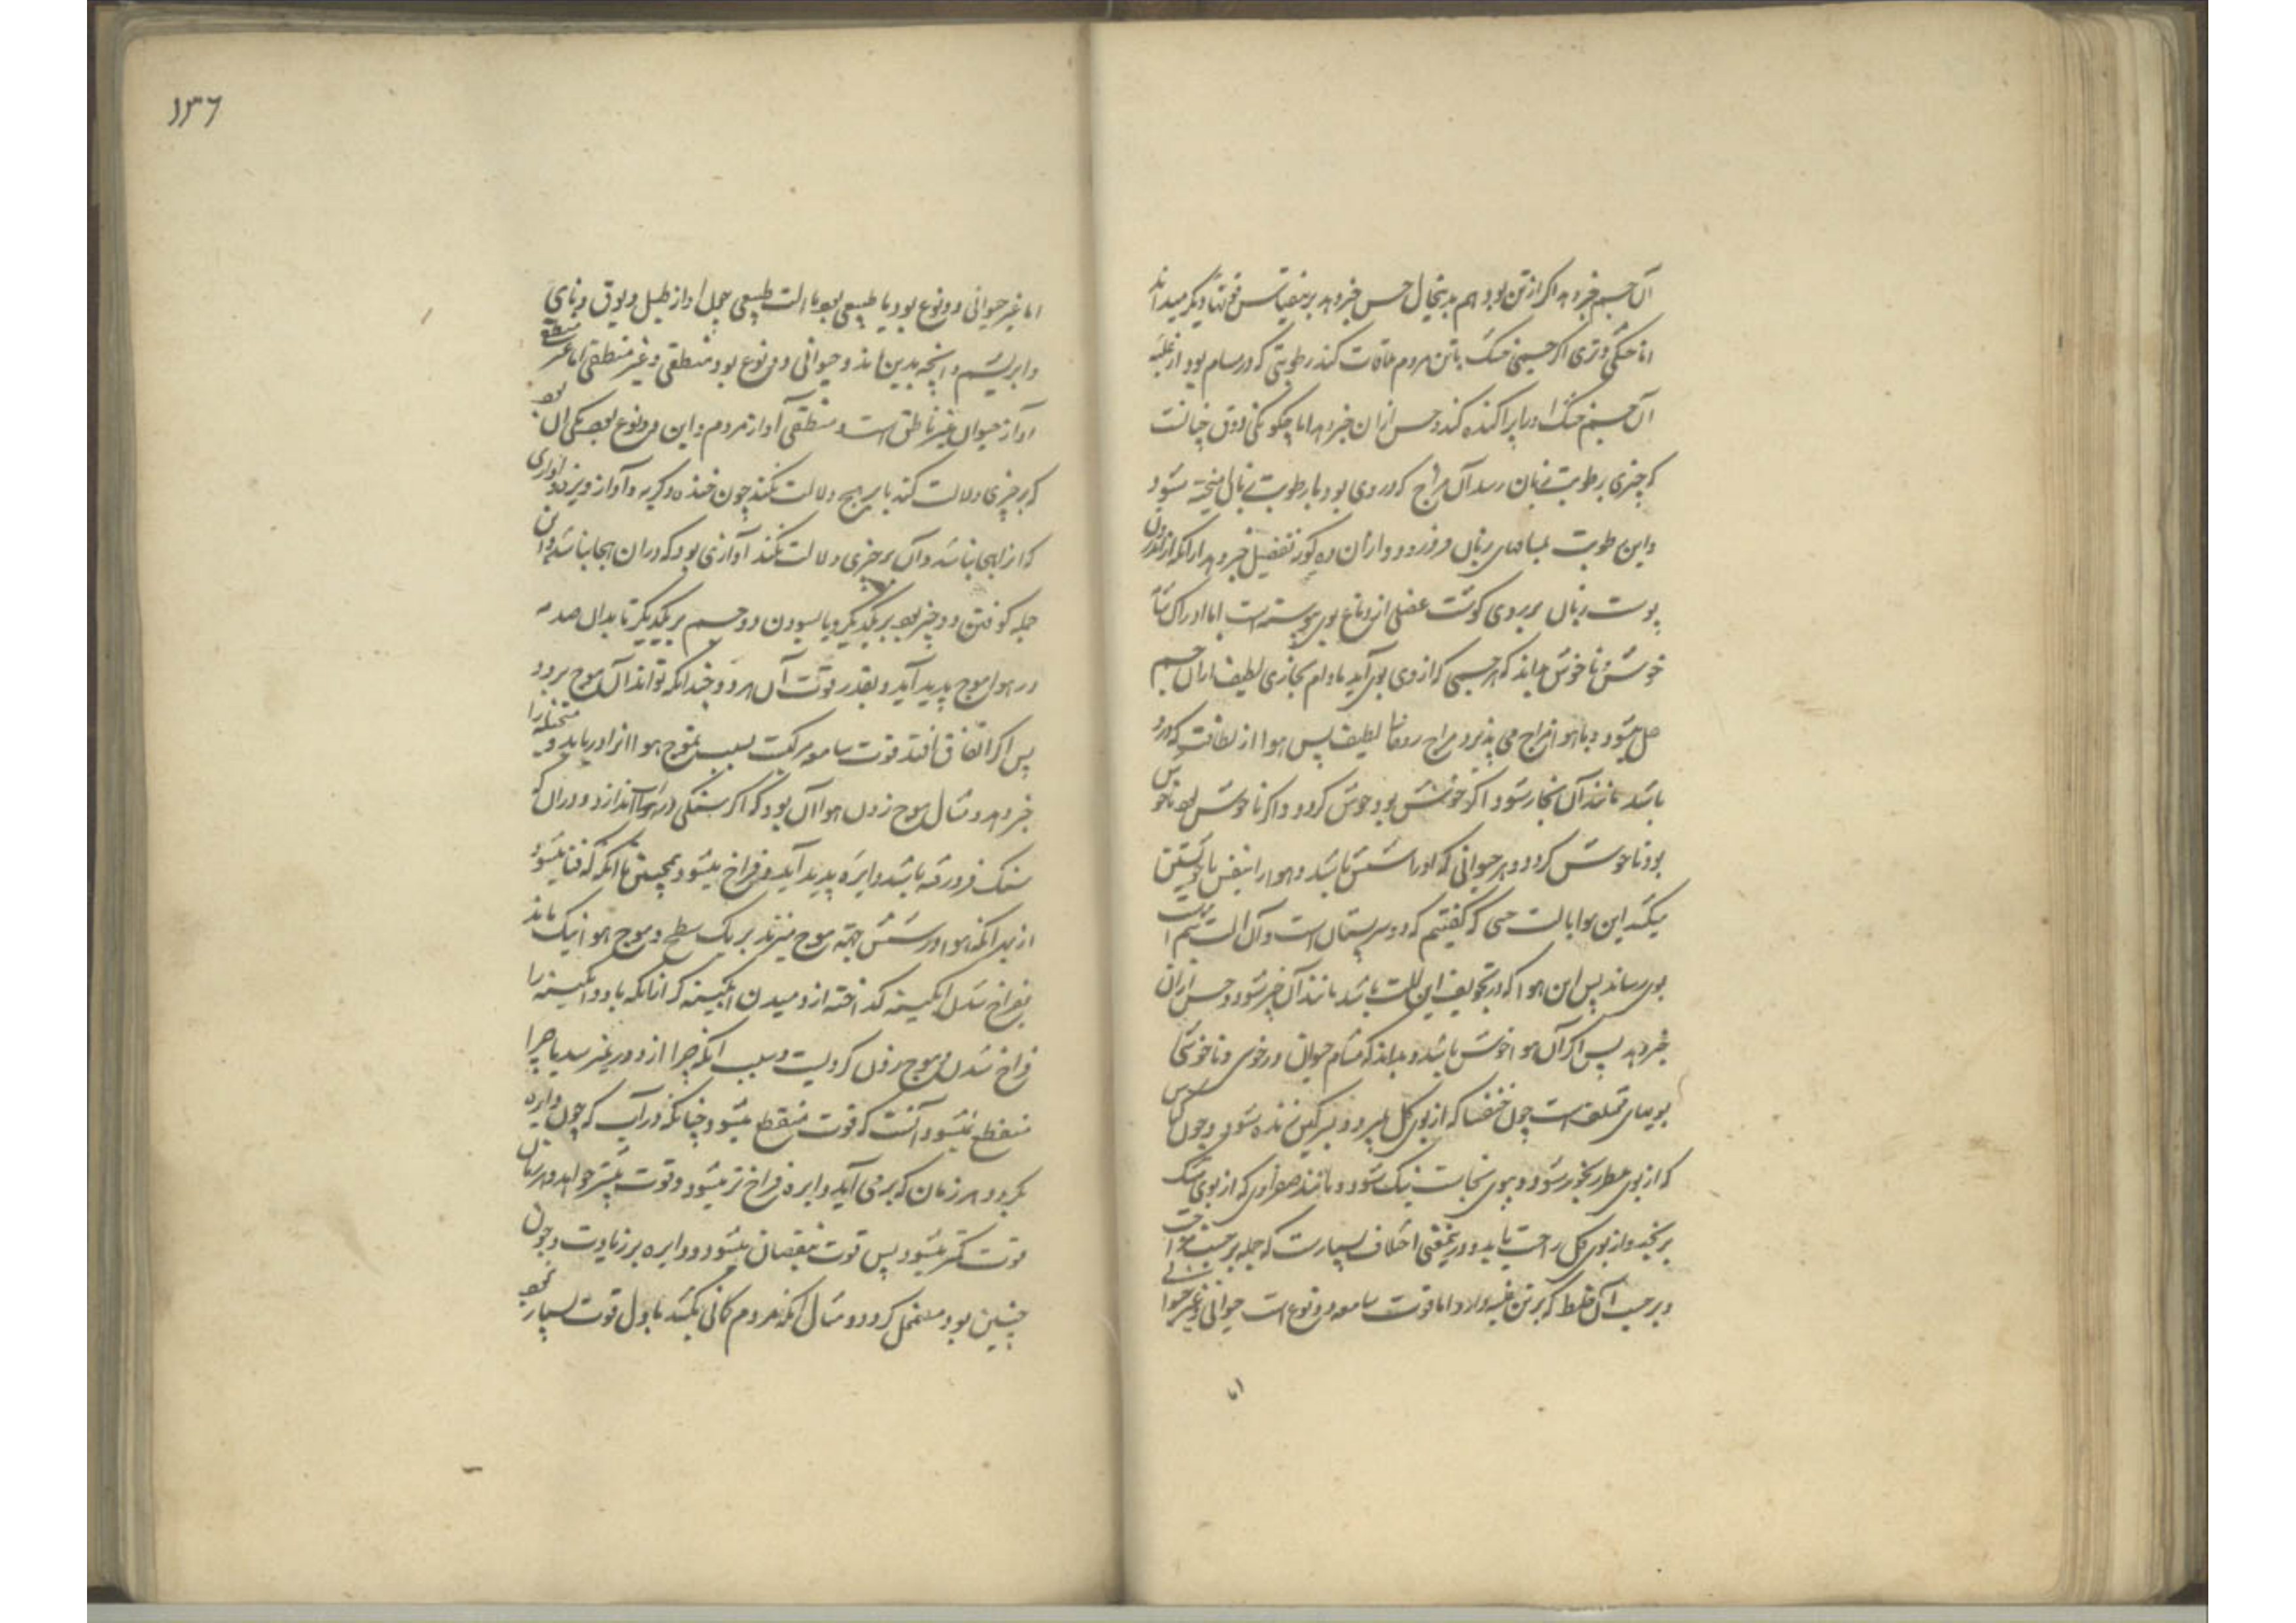 آن جسم خبر دهد اگر از تن بود هم بدینحال حس خبر دهد برین قیاس دیگر میداند
اما خشکی و تری اگر جسمی خشک با تن مردم ملاقات کند رطوبتی که در مسام بود از غلبه
آن جسم خشک او را پراکنده کند و حس از آن خبر دهد اما چگونگی ذوق چنانست
که چیزی برطوبت زبان رسد آن مزاج که در وی بود با رطوبت زبان آمیخته شود
و این رطوبت بمسامهای زبان فرو رود و از آن خبر دهد
پوست زبان بر روی گوشت عضلی از دماغ بوی پیوسته است اما ادراک شم
خوش و ناخوش بداند که هر جسمی که از وی بوی آید مادام بخاری لطیف از آن جسم
حل میشود و با هوا مزاج می پذیرد مزاج روحانی لطیف پس هوا از لطافت که درو
باشد مانند آن بخار شود اگر خوش بود خوش گردد و اگر ناخوش بود ناخوش
بود ناخوش گردد و هر حیوانی که او را شش باشد و هوا را بنفس باز خویشتن
میکشد این هوا بالت حسی که گفتیم که دو سر پستان است و آن آلت شم است
بوی رساند پس این هوا که در تجویف این آلت باشد مانند آن خبر شود و حس از آن
خبر دهد پس اگر آن هوا خوش باشد و بداند که مشام حیوانی در خوشی و ناخوشی
بویهای مختلف است چون خنفسا که از بوی گل بمیرد و بسرگین زنده شود و چون کناس
که از بوی عطر رنجور شود و ببوی نجاست نیک شود و مانند صفراوی که از بوی مشک
برنجد و از بوی گل راحت یابد و درین معنی اختلاف بسیارست که جمله بر حسب مزاجست
و بر حسب آن خلط که بر تن غلبه دارد اما قوت سامعه دو نوع است حیوانی و غیر حیوانی
اما
۱۳۶
اما غیر حیوانی دو نوع بود یا طبیعی بود یا آلت طبیعی چون آواز طبل و بوق و نای
و ابریشم و آنچه بدین ماند و حیوانی دو نوع بود منطقی و غیر منطقی اما غیر منطقی
آواز حیوان غیر ناطق است و منطقی آواز مردم و این دو نوع بود یکی آن بود
که بر چیزی دلالت کند یا بر هیچ دلالت نکند چون خنده و گریه و آواز و نیز آوازی
که از آن هجا نباشد و آن بر چیزی دلالت نکند آوازی بود که در آن هجا نباشد و این
جمله کوفتن دو چیز بود بر یکدیگر و یا بسودن دو جسم بر یکدیگر تا بدان صدمه
در هوا موج پدید آید و بقدر قوت آن هر دو چندانکه تواند آن موج برود
پس اگر اتفاق افتد قوت سامعه مرکب بسبب تموج هوا آنرا دریابد و متخیله را
خبر دهد و مثال موج زدن هوا آن بود که اگر سنگی در آب اندازد و در آن که
سنگ فرو رفته باشد دایره پدید آید و فراخ میشود همچنین تا آنگه که فنا میشود
از بهر آنکه هوا در شش جهت موج میزند بر یک سطح و موج هوا نیک ماند
بفراخ شدن آبگینه گداخته از دمیدن آبگینه گر از آنکه باد و آبگینه را
فراخ شدن و موج زدن کرویست و سبب آنکه چرا از دور نمیرسد یا چرا
منقطع نمیشود آنست که قوت منقطع میشود چنانکه در آب که چون دایره
بگردد هر زمان که برمی آید دایره فراخ تر میشود و قوت بیشتر خواهد و هر زمان
قوت کمتر میشود پس قوت بنقصان میشود و دایره بر زیادت و چون
چنین بود مضمحل گردد و مثال آنکه مردم کمانی بکشد باول قوت بسیار نخواهد